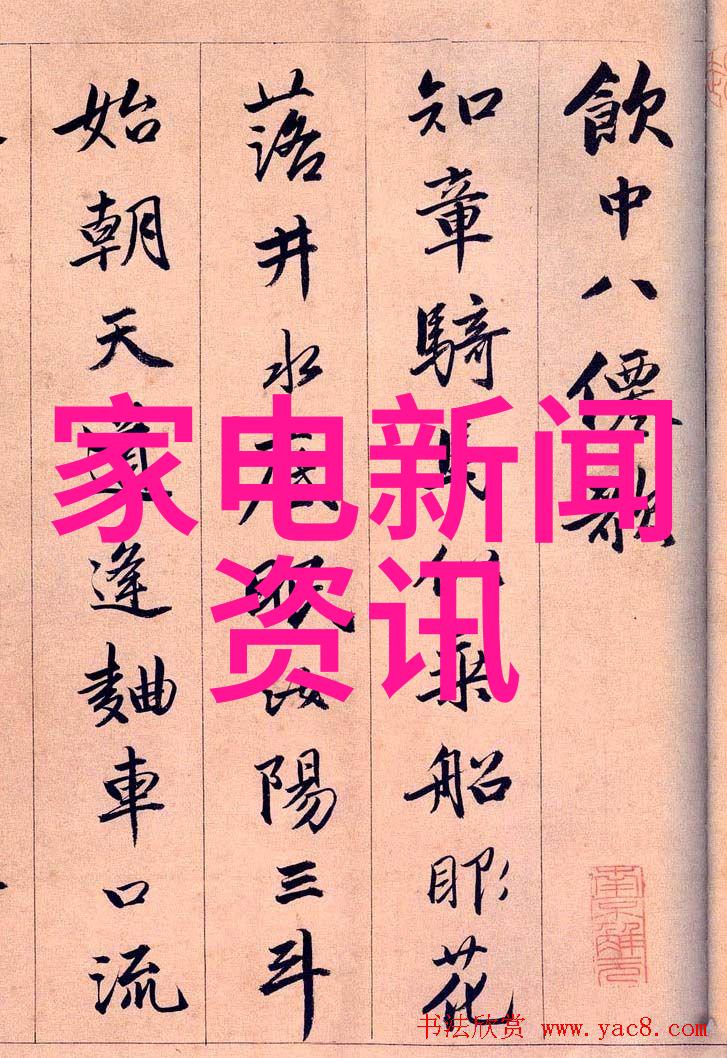 飲中八僊歌
知章騎馬似乘船眼花
落井水底眠汝陽三斗
始朝天道逢麯車口流
家电新闻
资讯
南京解元
书法欣赏 www.yac8.com